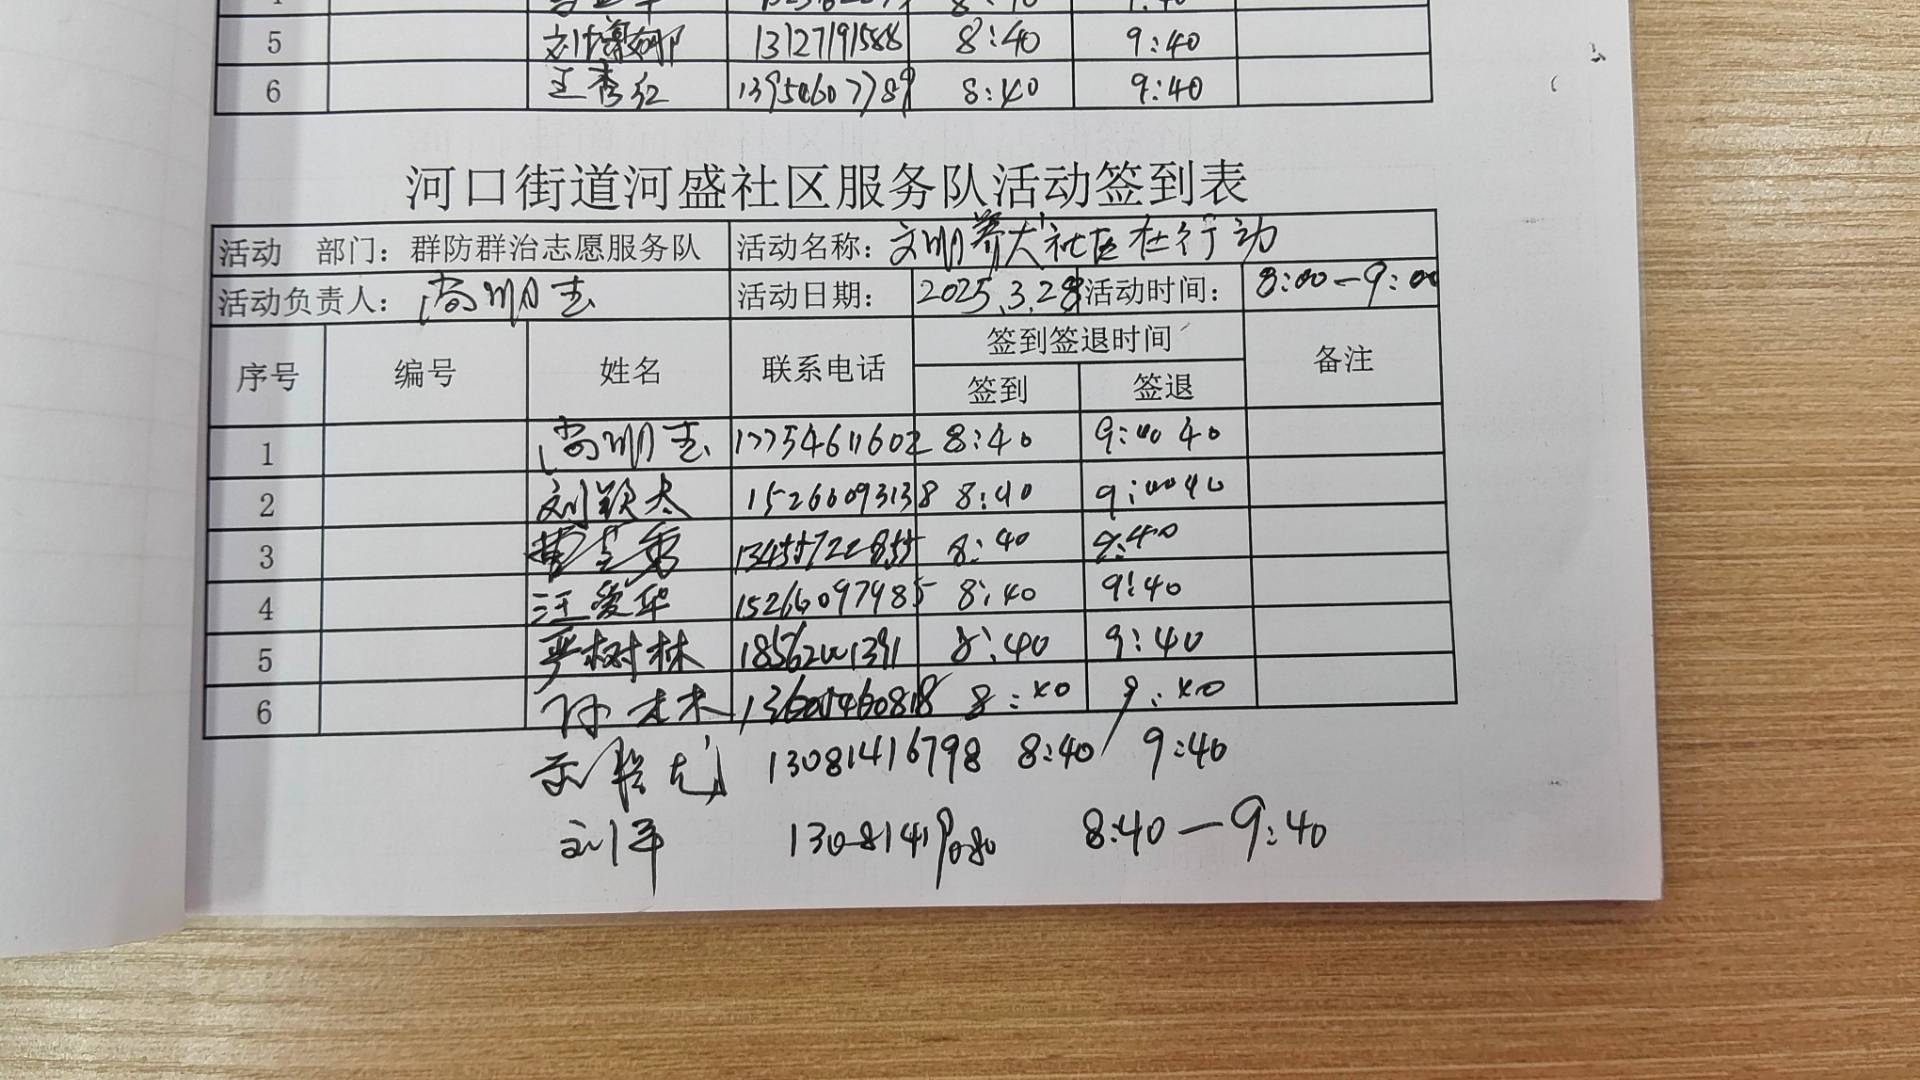 5 13127191588 8:40 9:40
6 王秀红 13954607789 8:40 9:40
河口街道河盛社区服务队活动签到表
活动 部门：群防群治志愿服务队 活动名称：文明养犬 社区在行动
活动负责人：尚明志 活动日期： 2025.3.28 活动时间： 8:00—9:00
序号 编号 姓名 联系电话 签到签退时间 备注
签到 签退
1 尚明志 17754611602 8:40 9:00 40
2 刘颖太 15266093138 8:40 9:00 40
3 13455722855 8:40 9:40
4 汪爱华 15266097985 8:40 9:40
5 严树林 18562001391 8:40 9:40
6 8:40 9:40
13081416798 8:40 9:40
刘军 8:40—9:40